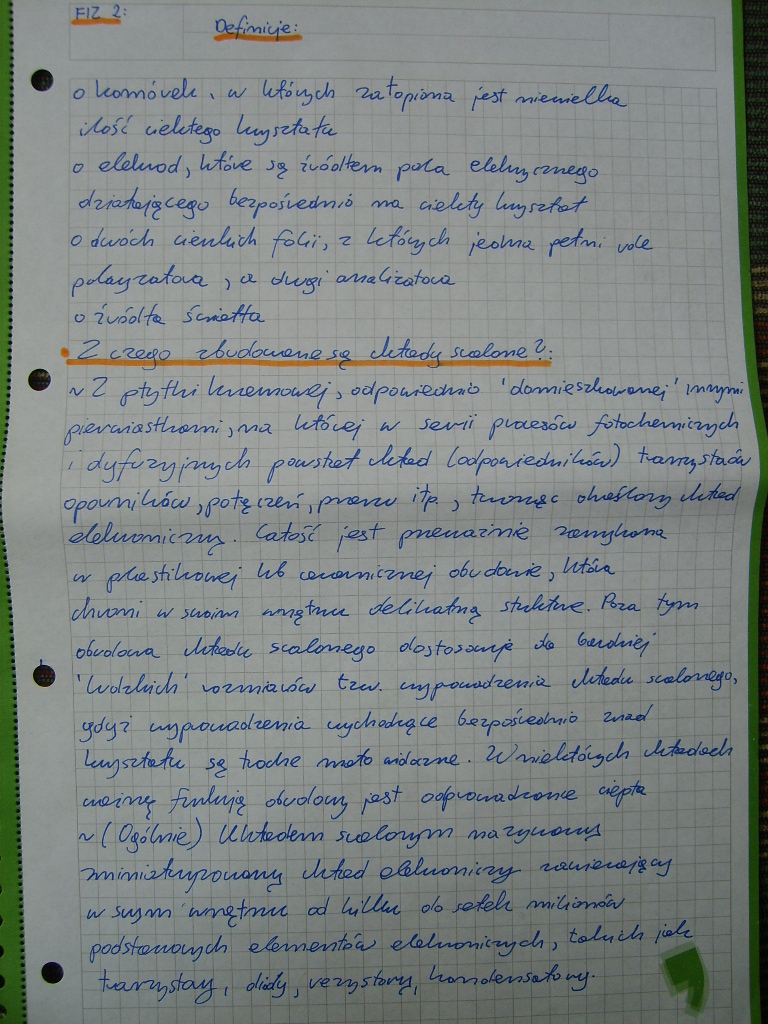 FIZ 2:
Definicje:
o komórek, w których zatopiona jest niewielka
ilość ciekłego kryształu
o elektrod, które są źródłem pola elektrycznego
działającego bezpośrednio na ciekły kryształ
o dwóch cienkich folii, z których jedna pełni role
polaryzatora, a drugi analizatora
o źródła światła
• Z czego zbudowane są układy scalone?:
~ Z płytki krzemowej, odpowiednio 'domieszkowanej' innymi
pierwiastkami, na której w serii procesów fotochemicznych
i dyfuzyjnych powstał układ (odpowiedników) tranzystorów
oporników, połączeń, przerw itp., tworząc określony układ
elektroniczny. Całość jest przeważnie zamykana
w plastikowej lub ceramicznej obudowie, która
chroni w swoim wnętrzu delikatną strukturę. Poza tym
obudowa układu scalonego dostosowuje do bardziej
'ludzkich' rozmiarów tzw. wyprowadzenia układu scalonego,
gdyż wyprowadzenia wychodzące bezpośrednio znad
kryształu są trochę mało widoczne. W niektórych układach
ważną funkcją obudowy jest odprowadzanie ciepła
~ (Ogólnie) Układem scalonym nazywamy
zminiaturyzowany układ elektroniczy zawierający
w swym wnętrzu od kilku do setek milionów
podstawowych elementów elektronicznych, takich jak
tranzystory, diody, rezystory, kondensatory.